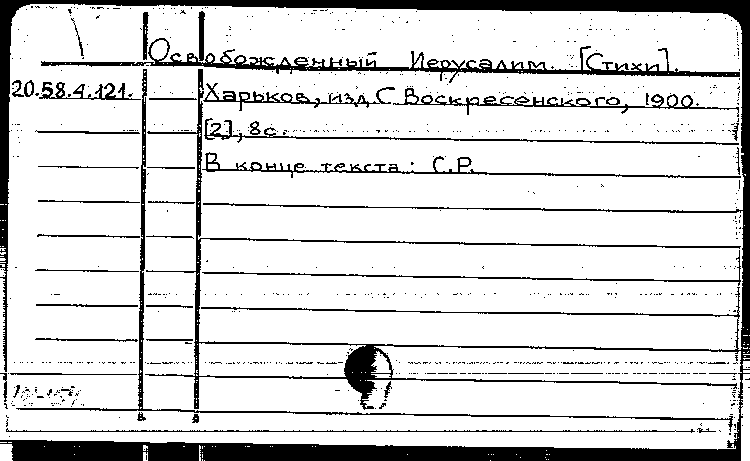 Освобожденный Иерусалим. [Стихи].
20.58.4.121. Харьков, изд. С Воскресенского, 1900.
[2], 8с.
В конце текста: С.Р.